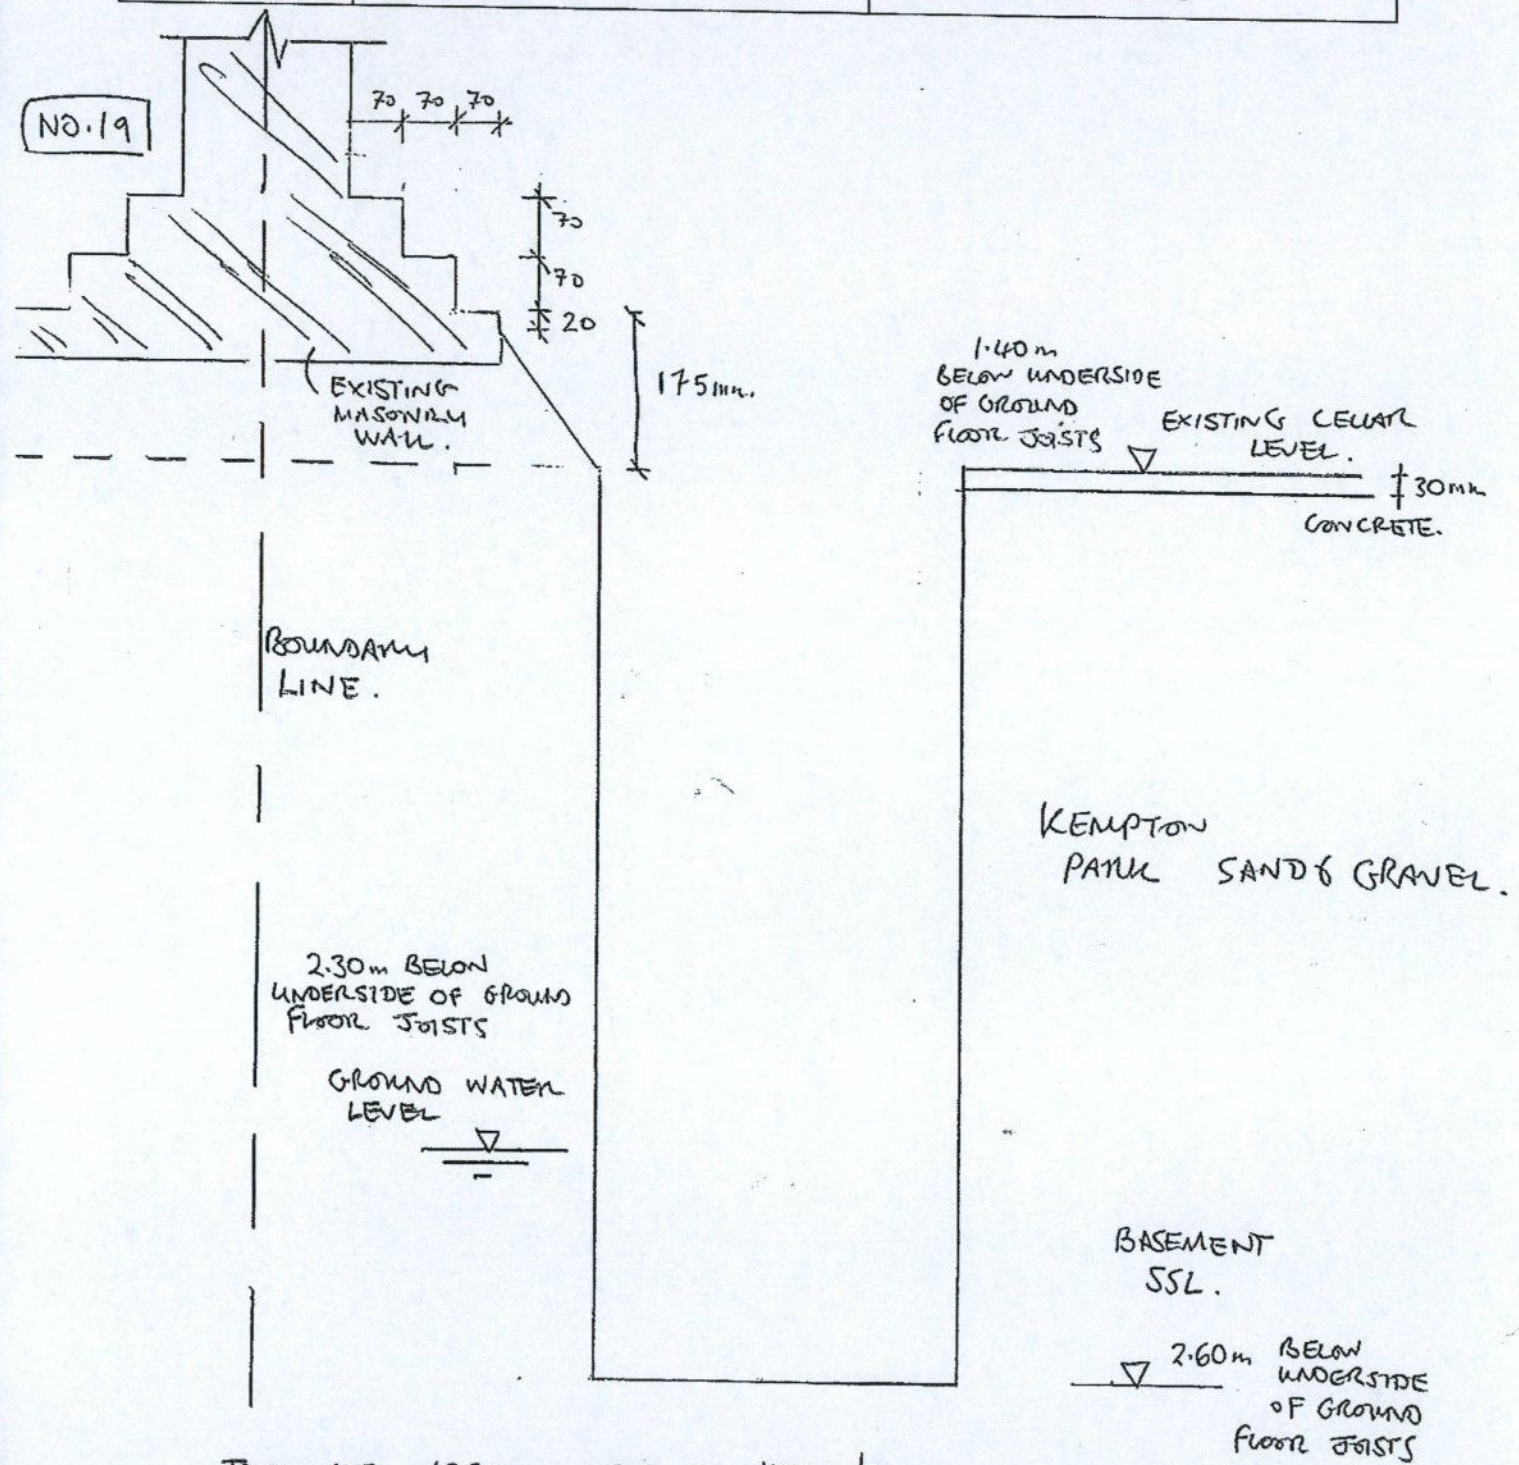 NO.19
70 70 70
70
70
20
175mm.
EXISTING
MASONRY
WALL.
1.40m
BELOW UNDERSIDE
OF GROUND
FLOOR JOISTS
EXISTING CELLAR
LEVEL.
30mm
CONCRETE.
BOUNDARY
LINE.
KEMPTON
PARK SAND & GRAVEL.
2.30m BELOW
UNDERSIDE OF GROUND
FLOOR JOISTS
GROUND WATER
LEVEL
BASEMENT
SSL.
2.60m BELOW
UNDERSIDE
OF GROUND
FLOOR JOISTS